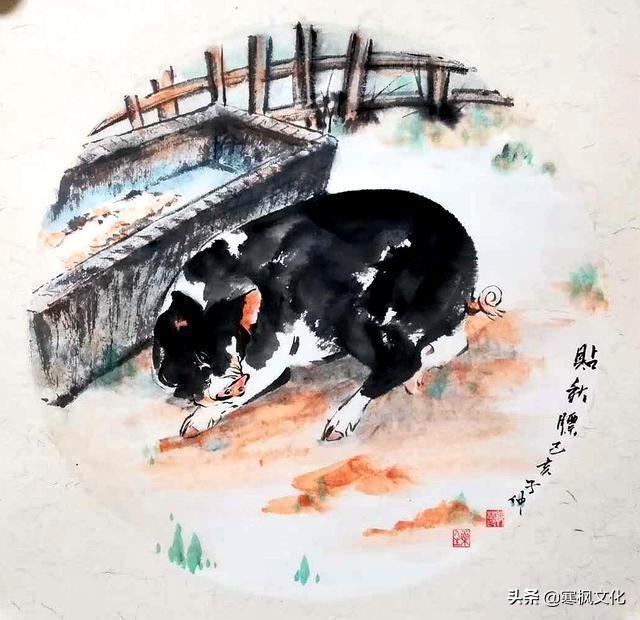 貼秋膘己亥子
头条 @寒枫文化